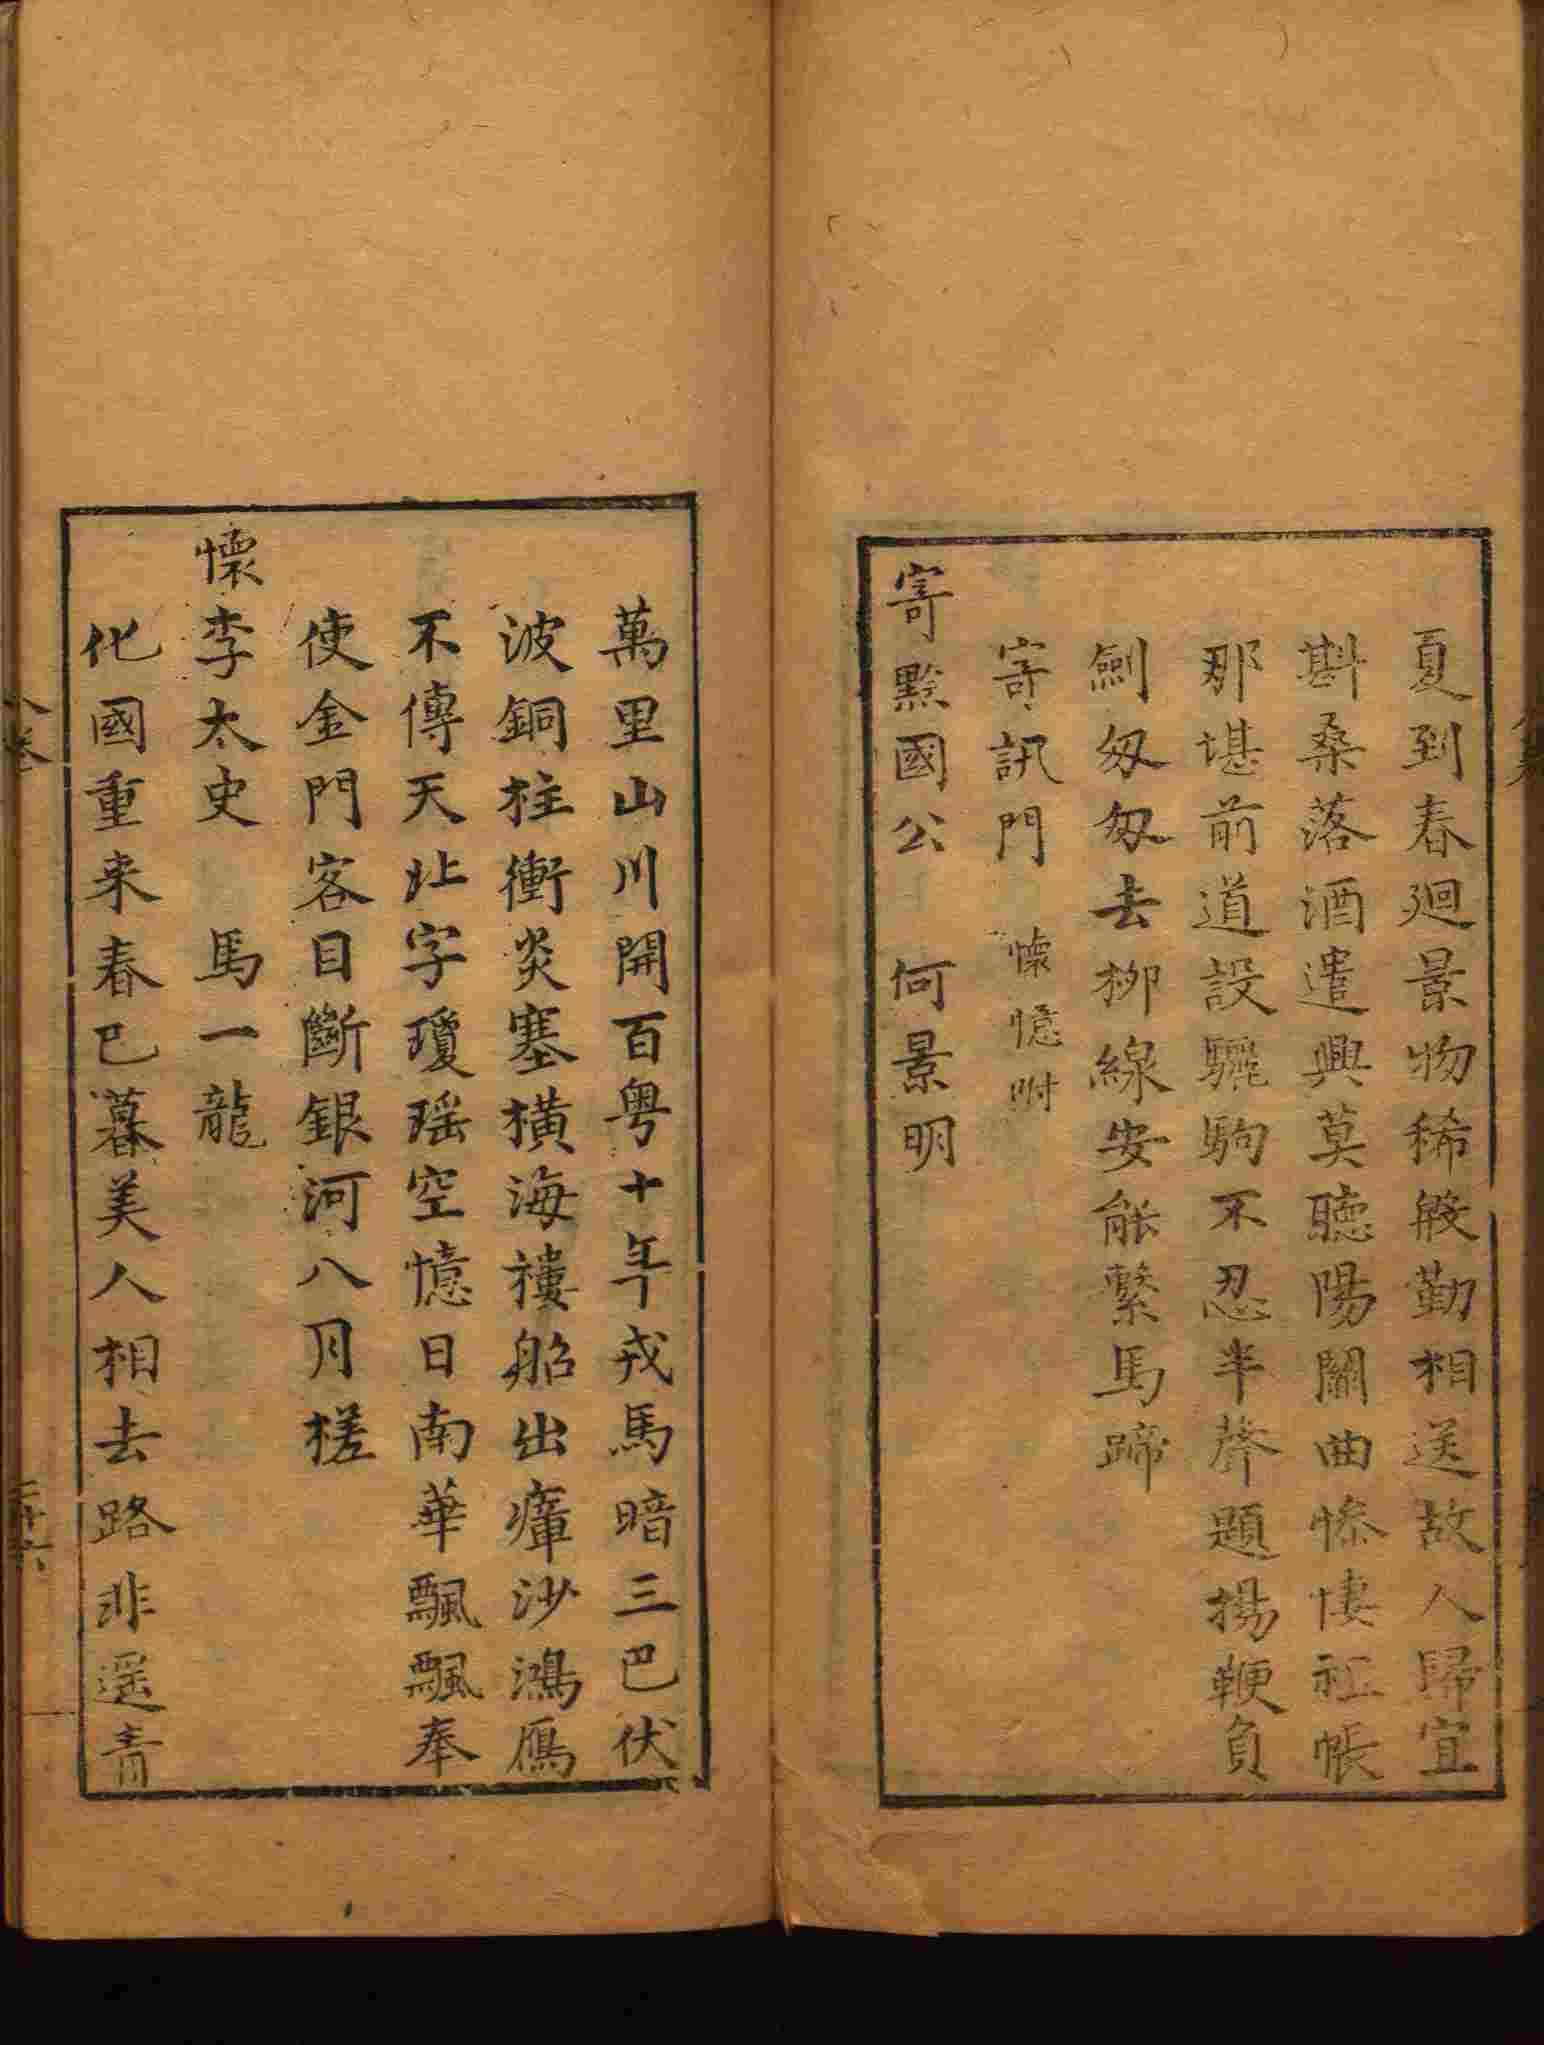 夏到春廻景物稀殷勤相送故人歸宜
斟桑落酒遣興莫聽陽關曲慘悽祖帳
那堪前道設驪駒不忍半聲題揚鞭負
劍匆匆去柳線安能繫馬蹄
寄訊門 懷憶附
寄黔國公 何景明
萬里山川開百粤十年戎馬暗三巴伏
波銅柱衝炎塞橫海樓船出瘴沙鴻鴈
不傳天北字瓊瑶空憶日南華飄飄奉
使金門客目斷銀河八月槎
懷李太史 馬一龍
化國重来春已暮美人相去路非遥青
八卷
二十六